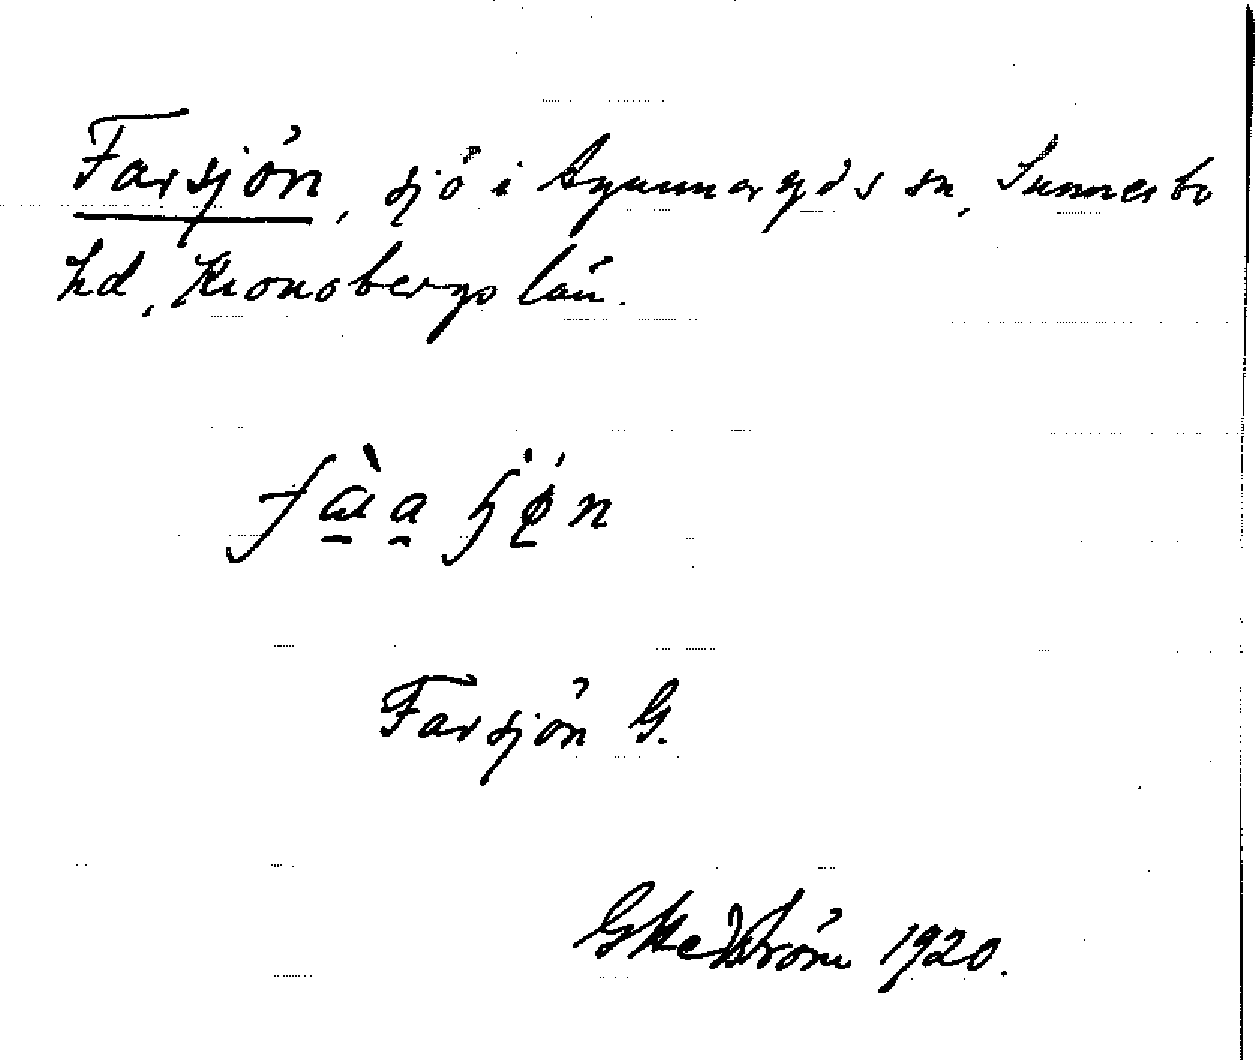 Farsjön, sjö i Agunnaryds sn, Sunnerbo
hd, Kronobergs län.
Farsjön G.
G Hedström 1920.